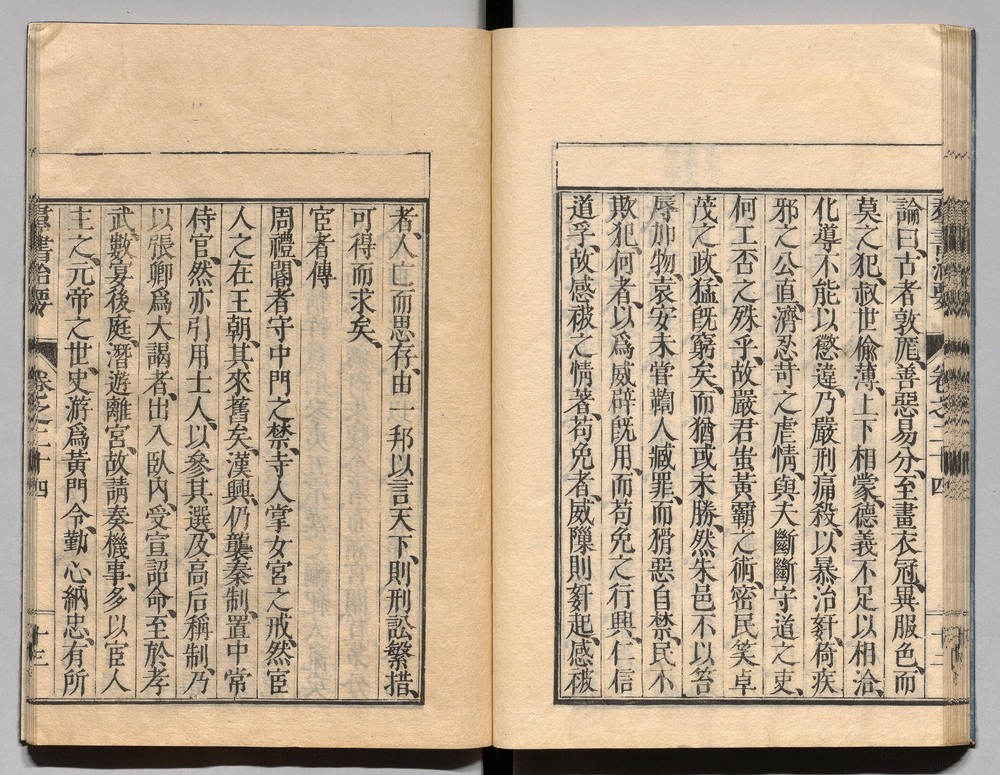 論曰、古者敦厖、善惡易分、至畫衣冠、異服色、而
莫之犯、叔世偷薄、上下相蒙、德義不足以相洽、
化導不能以懲違、乃嚴刑痛殺、以暴治姧、倚疾
邪之公直、濟忍苛之虐情、與夫斷斷守道之吏、
何工否之殊乎、故嚴君蚩黃霸之術、密民笑卓
茂之政、猛旣窮矣、而猶或未勝、然朱邑不以笞
辱加物、袁安未甞鞫人臧罪、而猾惡自禁、民不
欺犯、何者、以爲威辟旣用、而苟免之行興、仁信
道孚、故感被之情著、苟免者、威隟則姧起、感被
羣書治要 卷之二十四
者、人亡而思存、由一邦以言天下、則刑訟繁措、
可得而求矣、
宦者傳
周禮、閽者守中門之禁、寺人掌女宮之戒、然宦
人之在王朝、其來舊矣、漢興、仍襲秦制、置中常
侍官、然亦引用士人、以參其選、及高后稱制、乃
以張卿爲大謁者、出入臥內、受宣詔命、至於孝
武、數宴後庭、潛遊離宮、故請奏機事、多以宦人
主之、元帝之世、史游爲黃門令、勤心納忠、有所
羣書治要 卷之二十四 十三